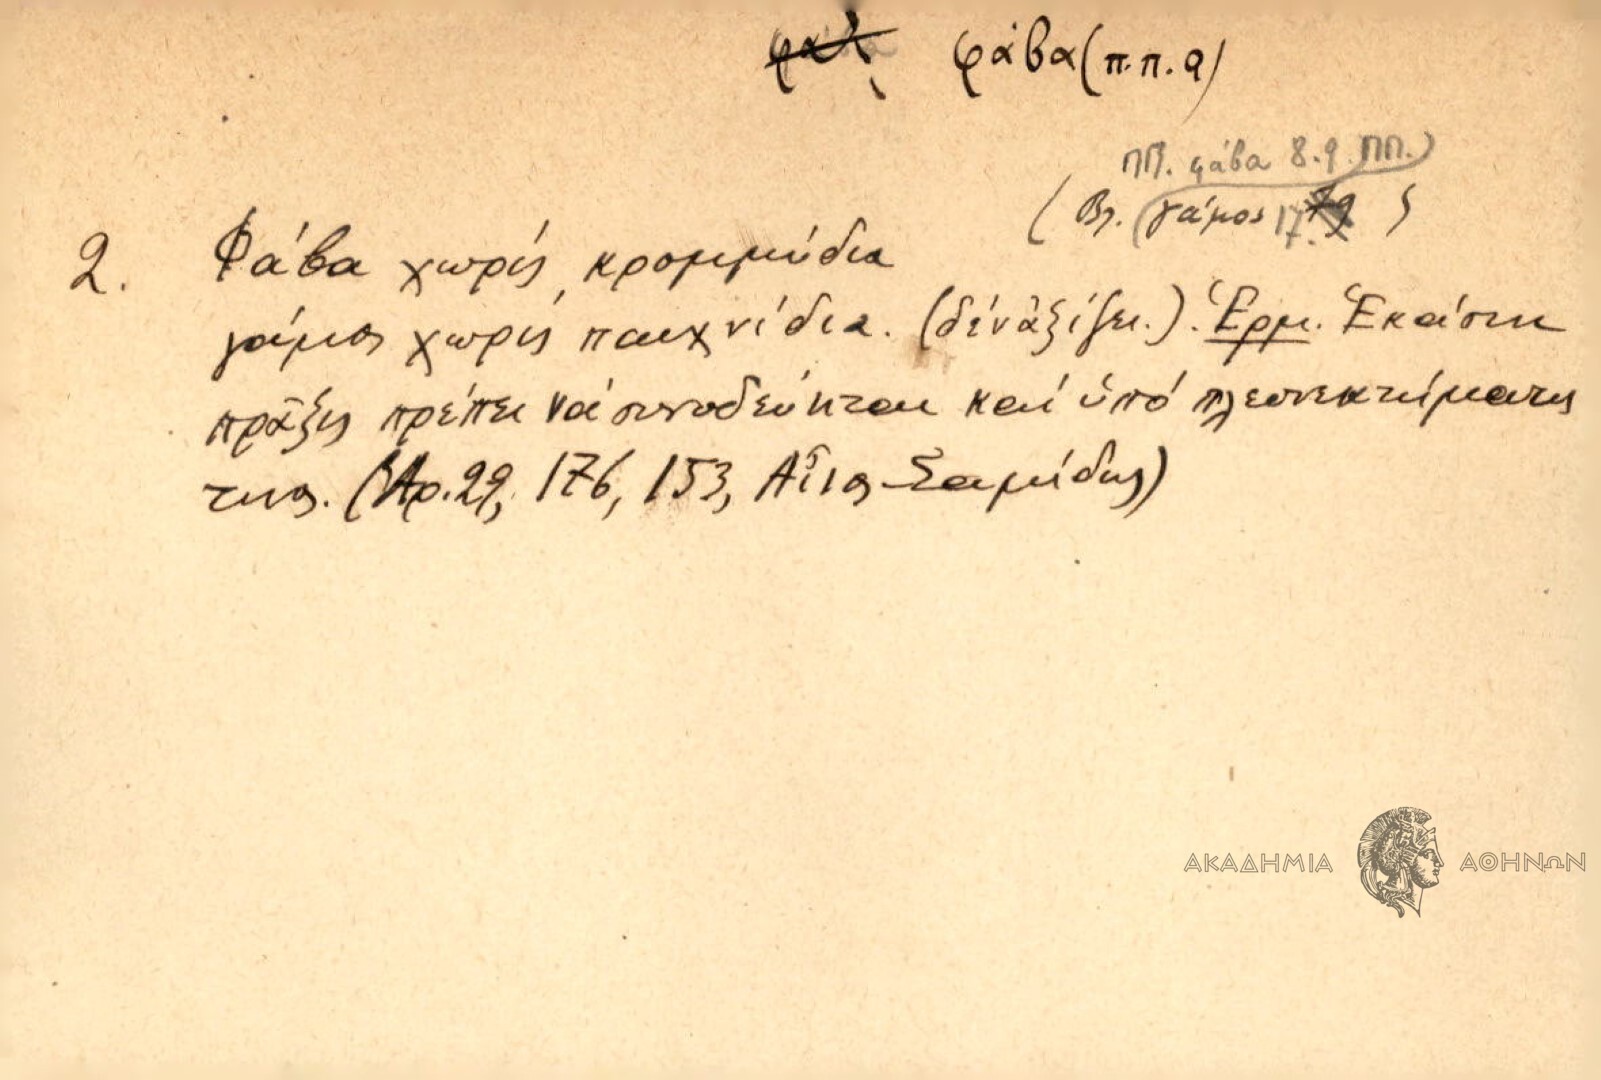 φάβα (π.π. 9)
ΠΠ. φάβα 8.9. ΠΠ.
(Βλ. γάμος 17.)
2. Φάβα χωρίς κρομμύδια
γάμος χωρίς παιχνίδια. (δέν ἀξίζει.). Ἑρμ. Ἑκάστη
πρᾶξις πρέπει νά συνοδεύηται καί ὑπό πλεονεκτήματος
τινος. (Ἀρ. 29, 176, 153, Αἶνος - Σαμίδης)
ΑΚΑΔΗΜΙΑ ΑΘΗΝΩΝ